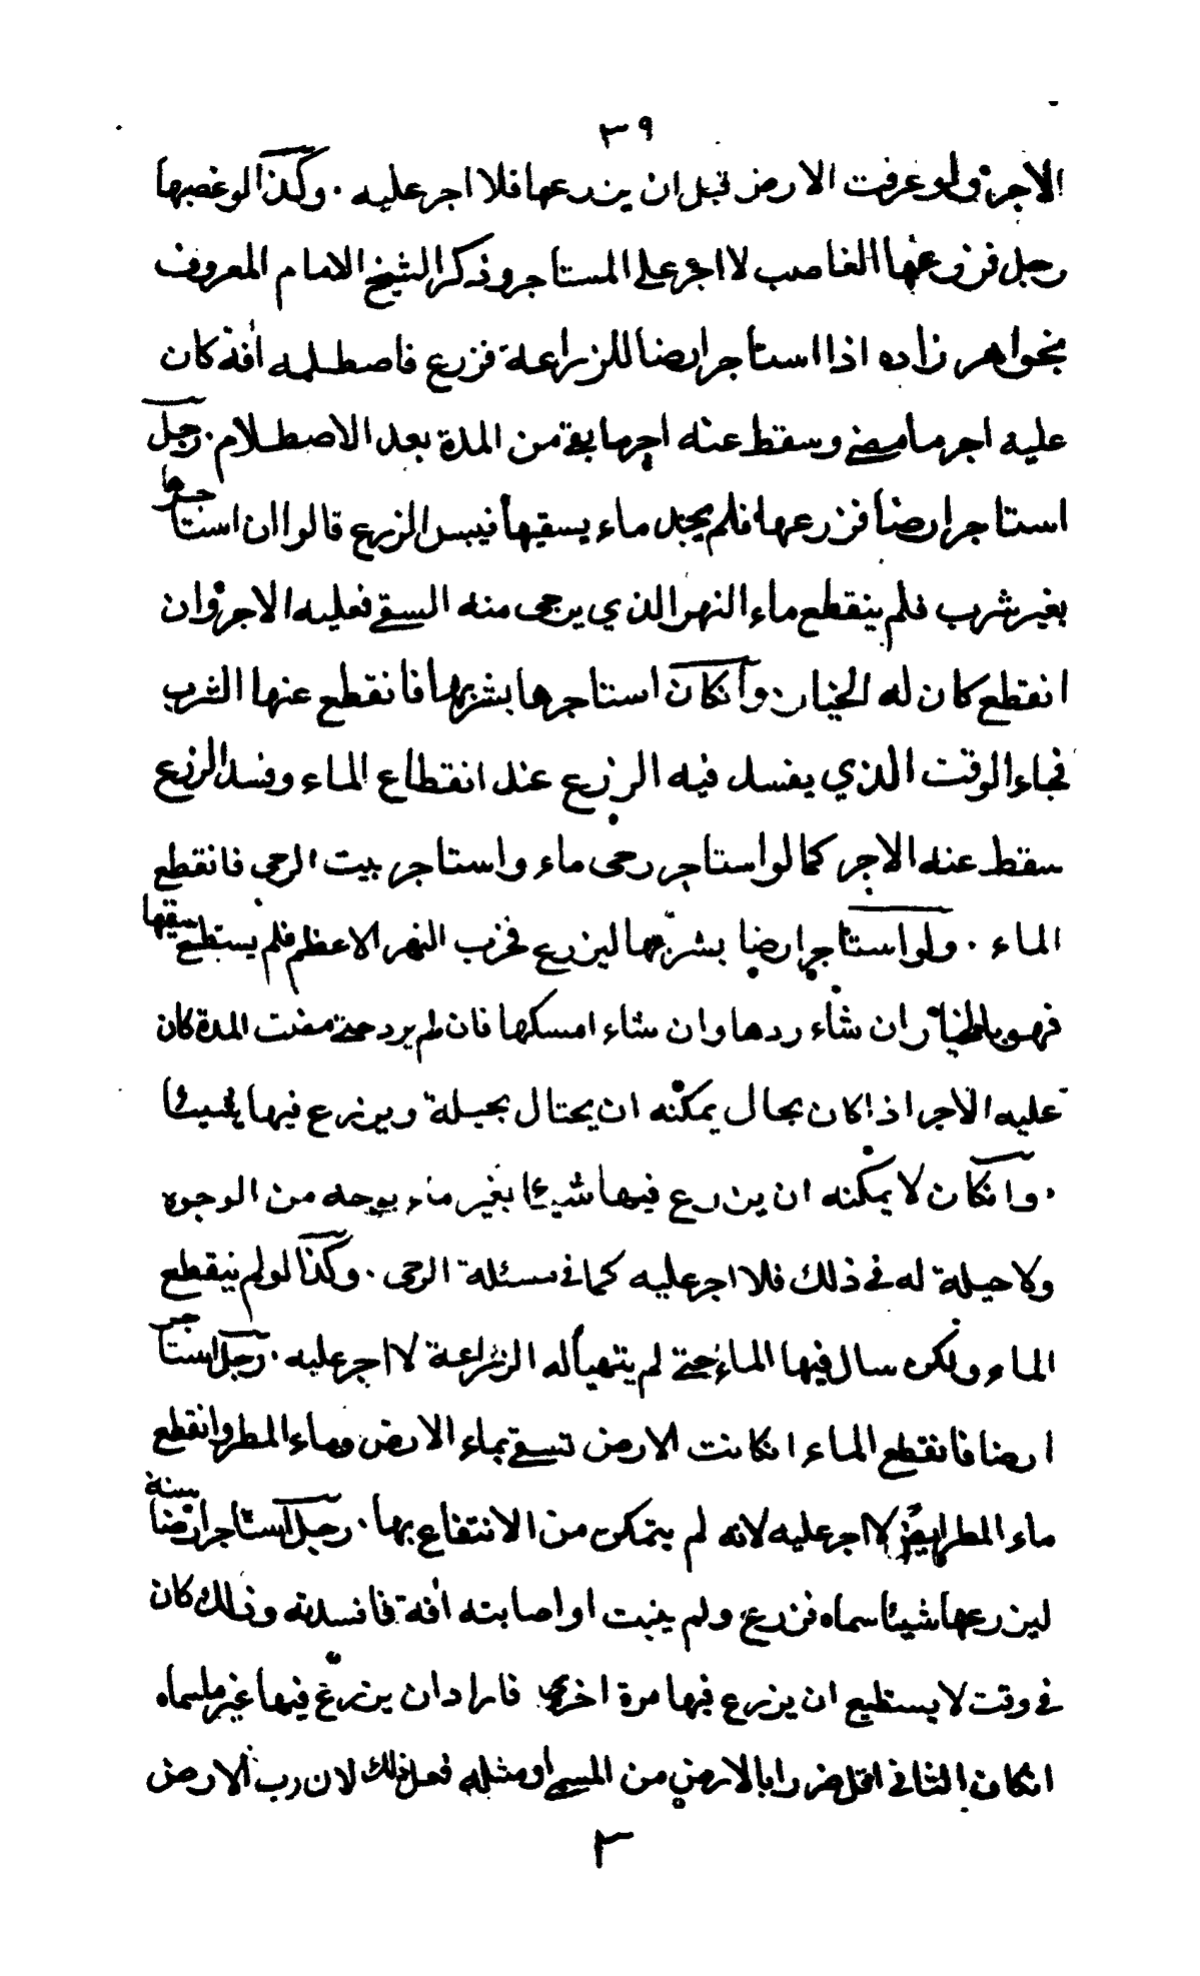 ٣٩
الاجر ولو غرقت الارض قبل ان يزرعها فلا اجر عليه . وكذا لو غصبها
رجل فزرعها الغاصب لا اجر على المستاجر وذكر الشيخ الامام المعروف
بخواهر زاده اذا استاجر ارضا للزراعة فزرع فاصطلمه آفة كان
عليه اجر ما مضى وسقط عنه اجر ما بقى من المدة بعد الاصطلام . رجل
استاجر ارضا فزرعها فلم يجد ماء يسقيها فيبس الزرع قالوا ان استاجرها
بغير شرب فلم ينقطع ماء النهر الذي يرجى منه السقى فعليه الاجر وان
انقطع كان له الخيار وانكان استاجرها بشربها فانقطع عنها الشرب
فجاء الوقت الذي يفسد فيه الزرع عند انقطاع الماء وفسد الزرع
سقط عنه الاجر كما لو استاجر رحى ماء واستاجر بيت الرحى فانقطع
الماء . ولو استاجر ارضا بشربها ليزرع فخرب النهر الاعظم فلم يستطع سقيها
فهو بالخيار ان شاء ردها وان شاء امسكها فان لم يرد حتى مضت المدة كان
عليه الاجر اذا كان بحال يمكنه ان يحتال بحيلة ويزرع فيها شيئا
. وانكان لا يمكنه ان يزرع فيها شيئا بغير ماء بوجه من الوجوه
ولا حيلة له في ذلك فلا اجر عليه كما في مسئلة الرحى . وكذا لو لم ينقطع
الماء ولكن سال فيها الماء حتى لم يتهيأ له الزراعة لا اجر عليه . رجل استاجر
ارضا فانقطع الماء انكانت الارض تسقى بماء الارض وماء المطر وانقطع
ماء المطر ايضا لا اجر عليه لانه لم يتمكن من الانتفاع بها . رجل استاجر ارضا سنة
ليزرعها شيئا سماه فزرع ولم ينبت او اصابته آفة فافسدته وذلك كان
في وقت لا يستطيع ان يزرع فيها مرة اخرى فاراد ان يزرع فيها غير ما سماه
انكان الثاني اقل ضررا بالارض من المسمى او مثله فعل ذلك لان رب الارض
٣